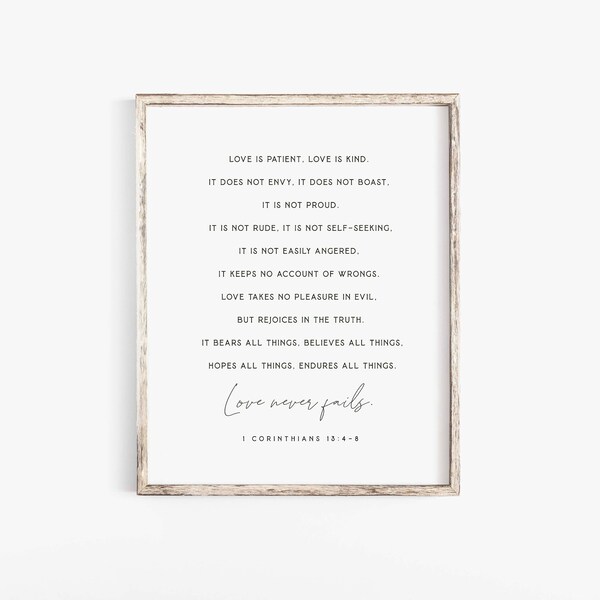 LOVE IS PATIENT, LOVE IS KIND.
IT DOES NOT ENVY, IT DOES NOT BOAST,
IT IS NOT PROUD.
IT IS NOT RUDE, IT IS NOT SELF-SEEKING,
IT IS NOT EASILY ANGERED,
IT KEEPS NO ACCOUNT OF WRONGS.
LOVE TAKES NO PLEASURE IN EVIL,
BUT REJOICES IN THE TRUTH.
IT BEARS ALL THINGS, BELIEVES ALL THINGS,
HOPES ALL THINGS, ENDURES ALL THINGS.
Love never fails.
1 CORINTHIANS 13:4-8